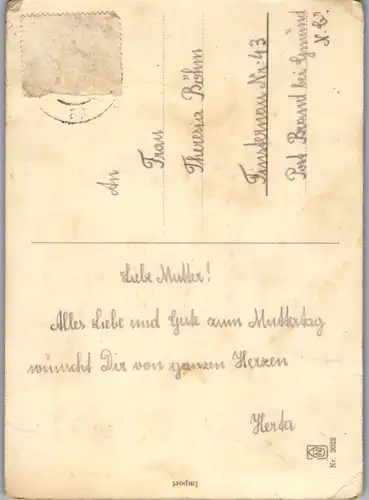 An
Frau
Theresia Böhm
Finsternau Nr. 43
Post Brand bei Gmünd
N. Ö.
Liebe Mutter!
Alles Liebe und Gute zum Muttertag
wünscht Dir von ganzen Herzen
Herta
Nr. 2022
Import